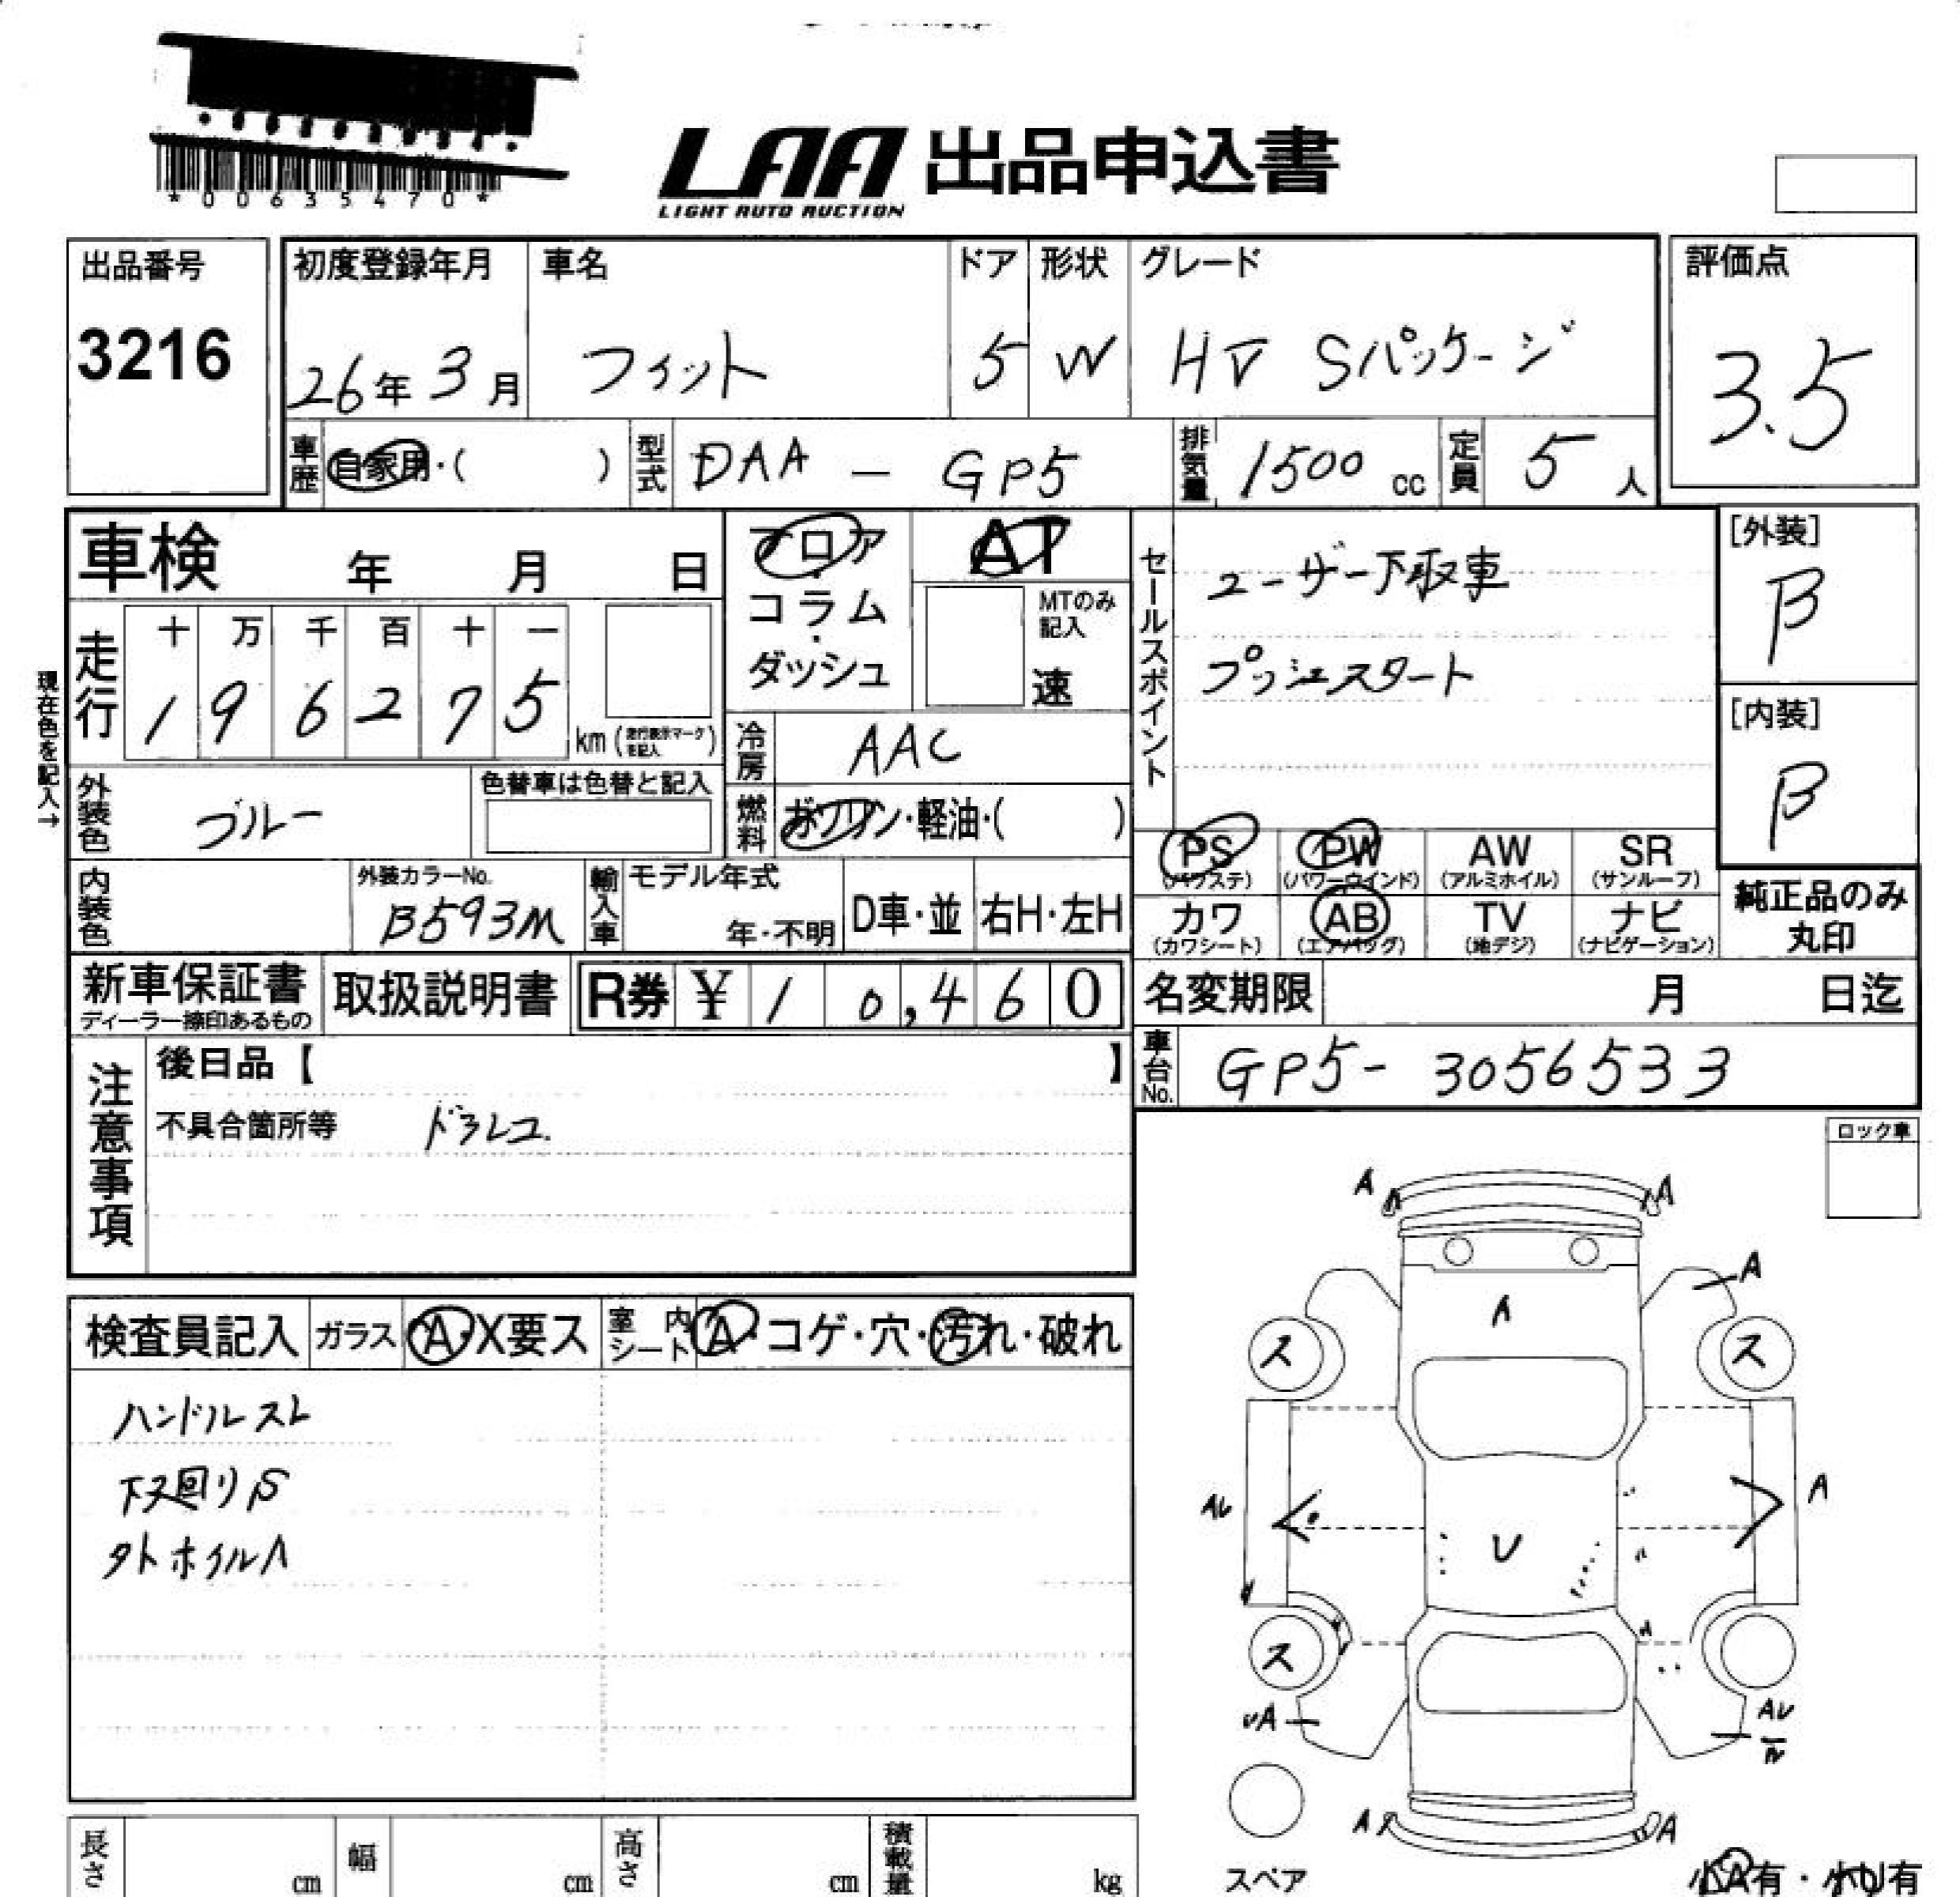 *00635470*
LAA 出品申込書
LIGHT AUTO AUCTION
出品番号
3216
初度登録年月
26年 3月
車名
フィット
ドア
5
形状
W
グレード
HV Sパッケージ
評価点
3.5
車歴
自家用・( )
型式
DAA - GP5
排気量
1500 cc
定員
5 人
車検 年 月 日
フロア・コラム・ダッシュ
AT
MTのみ記入
速
セールスポイント
ユーザー下取車
プッシュスタート
[外装]
B
[内装]
B
現在色を記入→
走行
十 万 千 百 十 一
1 9 6 2 7 5 km (走行表示マークを記入)
冷房
AAC
外装色
ブルー
色替車は色替と記入
燃料
ガソリン・軽油・( )
PS (パワステ)
PW (パワーウインド)
AW (アルミホイル)
SR (サンルーフ)
カワ (カワシート)
AB (エアバッグ)
TV (地デジ)
ナビ (ナビゲーション)
純正品のみ丸印
内装色
外装カラーNo.
B593M
輸入車
モデル年式
年・不明
D車・並
右H・左H
新車保証書
ディーラー捺印あるもの
取扱説明書
R券 ¥ 10,460
名変期限 月 日迄
車台No.
GP5- 3056533
注意事項
後日品【 】
不具合箇所等 ドラレコ.
ロック車
検査員記入
ガラス A・X要ス
室内シート A・コゲ・穴・汚れ・破れ
ハンドルスレ
下回りS
外ホイルA
A A
A
A
ス ス
AU
A
U
ス
UA
AU
A A
スペア
小A有・小U有
長さ cm
幅 cm
高さ cm
積載量 kg